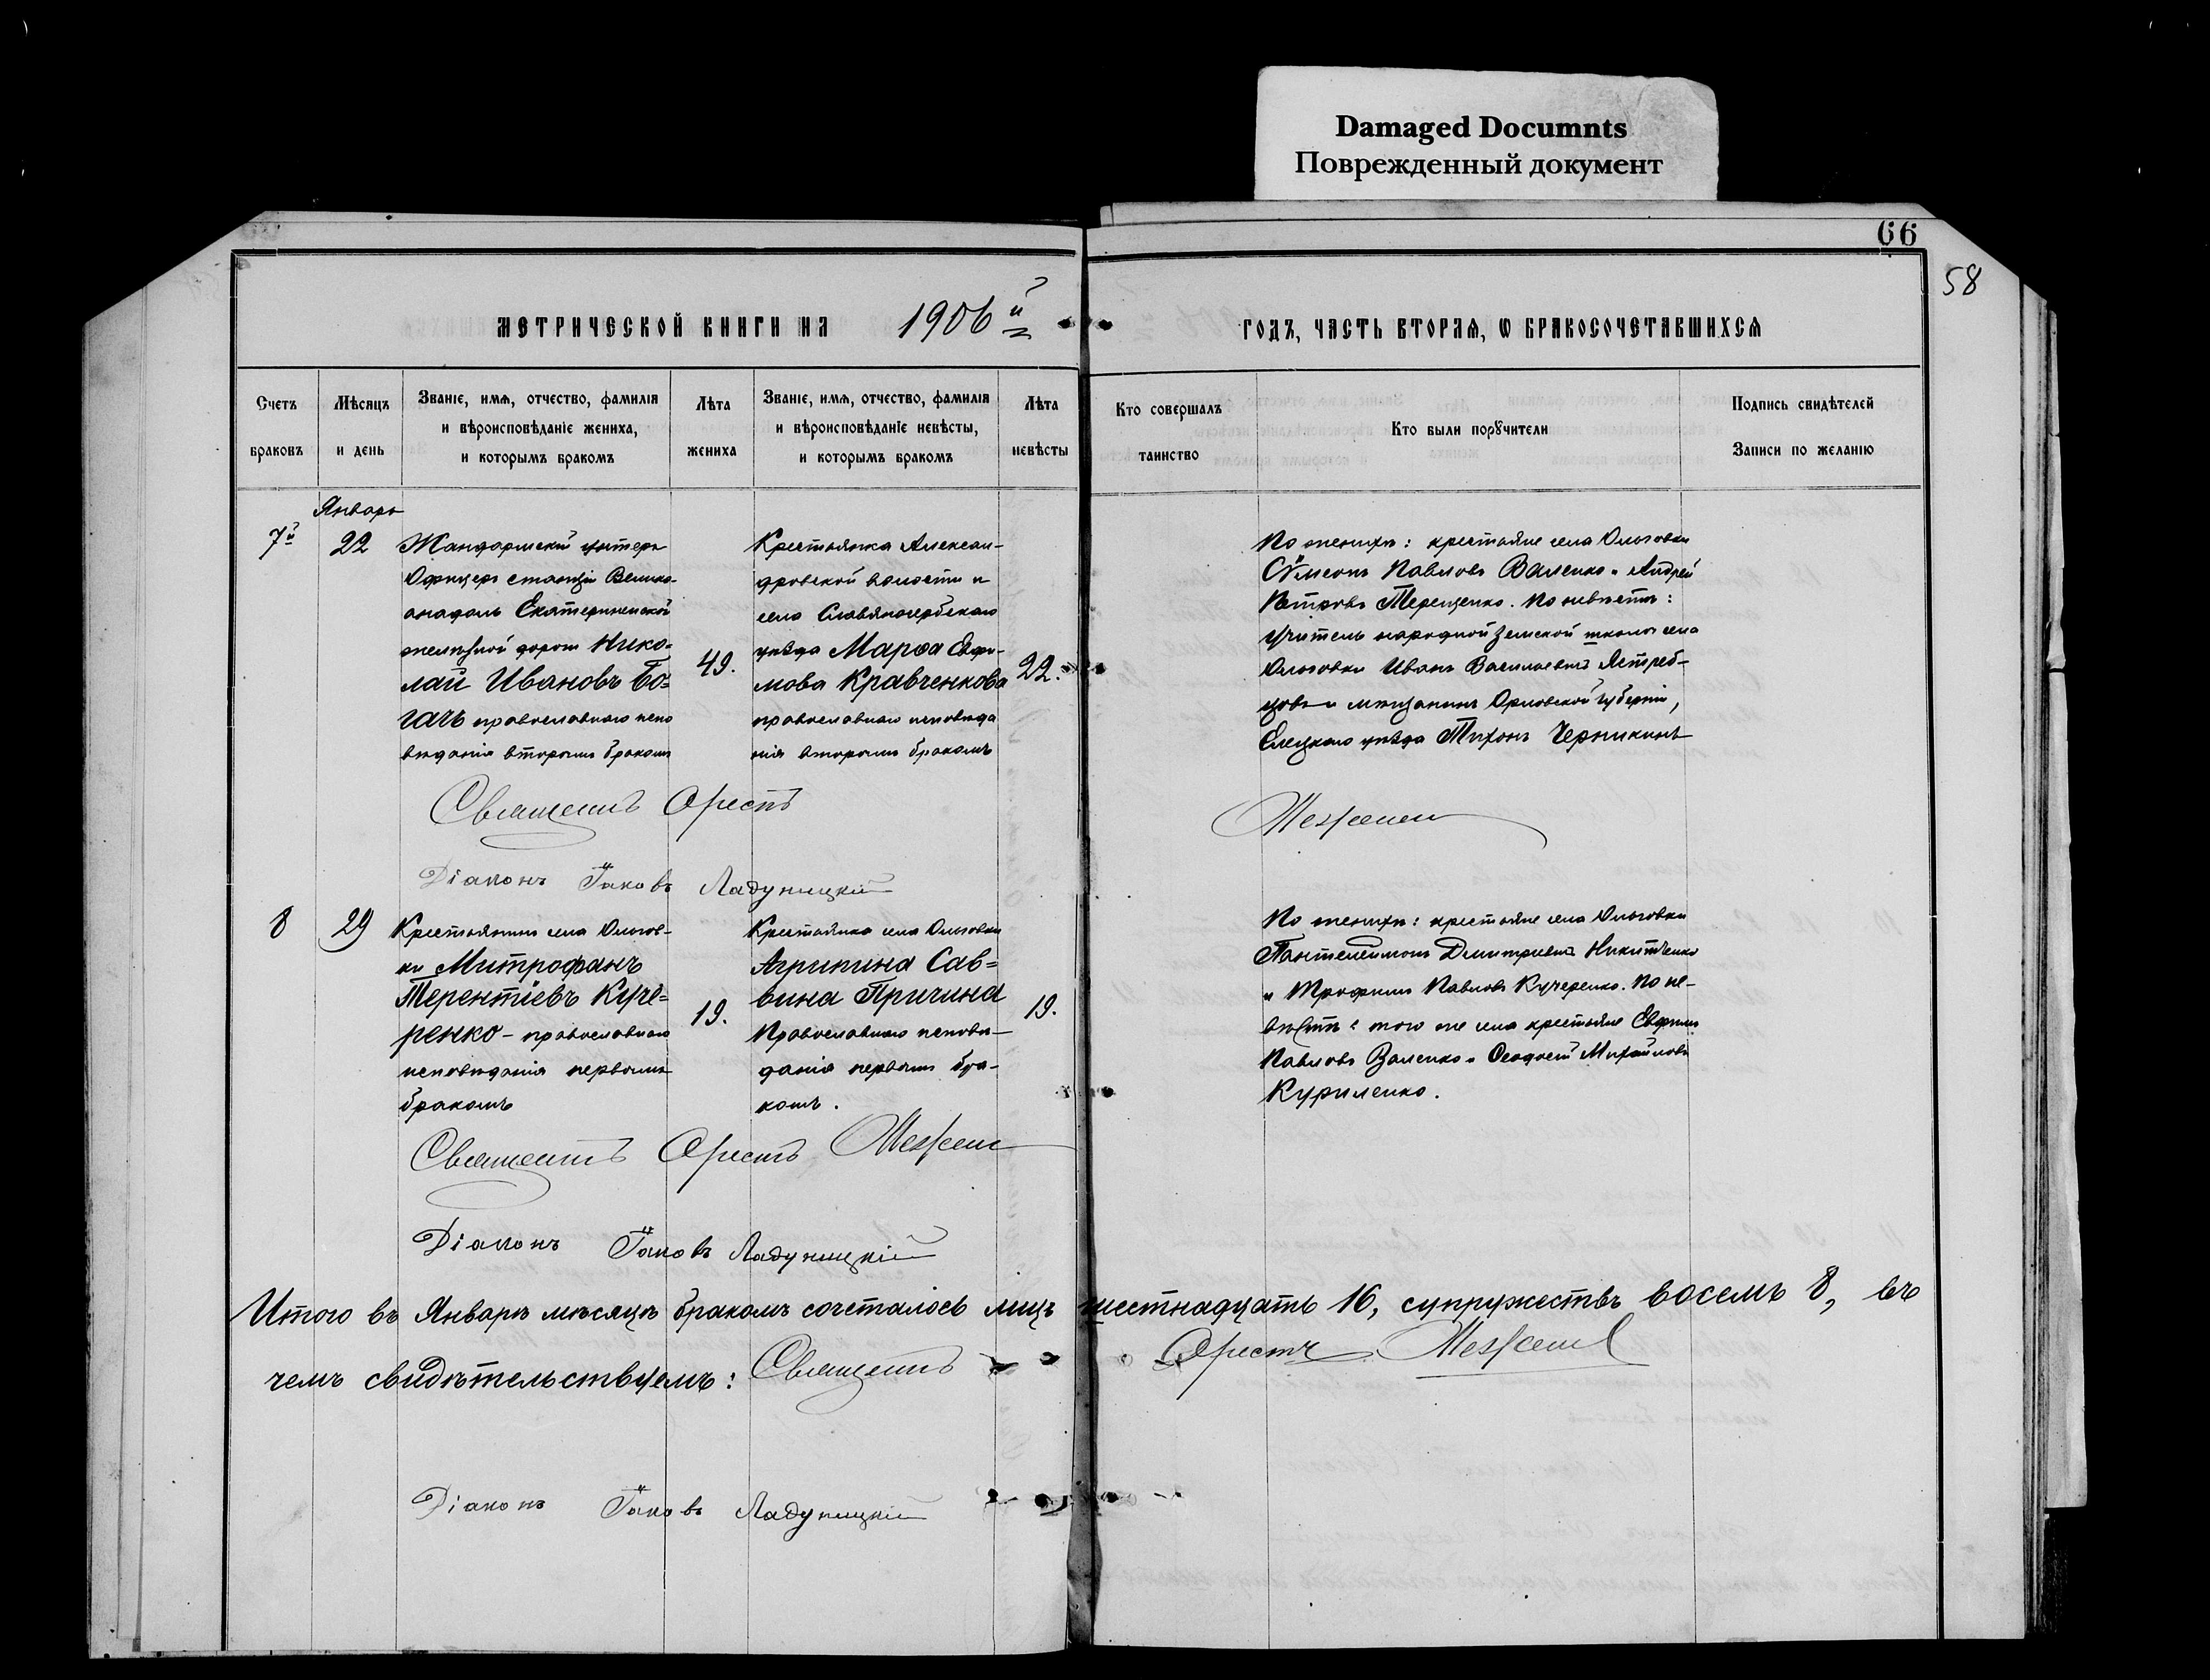 Damaged Documnts
Поврежденный документ
66
58
МЕТРИЧЕСКОЙ КНИГИ НА 1906й
ГОДЪ, ЧАСТЬ ВТОРАЯ, Ѡ БРАКОСОЧЕТАВШИХСЯ
Счетъ
браковъ
Мѣсяцъ
и день
Званіе, имя, отчество, фамилія
и вѣроисповѣданіе жениха,
и которымъ бракомъ
Лѣта
жениха
Званіе, имя, отчество, фамилія
и вѣроисповѣданіе невѣсты,
и которымъ бракомъ
Лѣта
невѣсты
Кто совершалъ
таинство
Кто были порꙋчители
Подпись свидѣтелей
Записи по желанію
7й
Январь
22
Жандармскій унтеръ
Офицеръ станціи Велико-
анадоль Екатерининской
желѣзной дороги Нико-
лай Ивановъ Бо=
гачъ православнаго испо
вѣданія вторымъ бракомъ
49.
Крестьянка Алексан-
дровской волости и
села Славяносербскаго
уѣзда Марѳа Евфи-
мова Кравченкова
православнаго исповѣда
нія вторымъ бракомъ
22.
По женихѣ: крестьяне села Ольговки
Сѵмеонъ Павловъ Валенко и Андрей
Петровъ Терещенко. По невѣстѣ:
учитель народной земской школы села
Ольговки Иванъ Васильевичъ Ястреб-
цовъ и мѣщанинъ Орловской губерніи,
Елецкаго уѣзда Тихонъ Черникинъ
Священникъ Орестъ
Діаконъ Іаковъ Ладуницкій
8
29
Крестьянинъ села Ольгов-
ки Митрофанъ
Терентіевъ Куче=
ренко - православнаго
исповѣданія первымъ
бракомъ
19.
Крестьянка села Ольговки
Агрипина Сав=
вина Причина
Православнаго исповѣ-
данія первымъ бра-
комъ.
19.
По женихѣ: крестьяне села Ольговки
Пантелеимонъ Дмитріевъ Никитченко
и Трофимъ Павловъ Кучеренко. По не-
вѣстѣ: того же села крестьяне Евфимъ
Павловъ Валенко и Ѳеодосій Михайловъ
Куриленко.
Священникъ Орестъ
Діаконъ Іаковъ Ладуницкій
Итого въ Январѣ мѣсяцѣ бракомъ сочеталось лицъ шестнадцать 16, супружествъ восемь 8, въ
чемъ свидѣтельствуемъ: Священникъ Орестъ
Діаконъ Іаковъ Ладуницкій